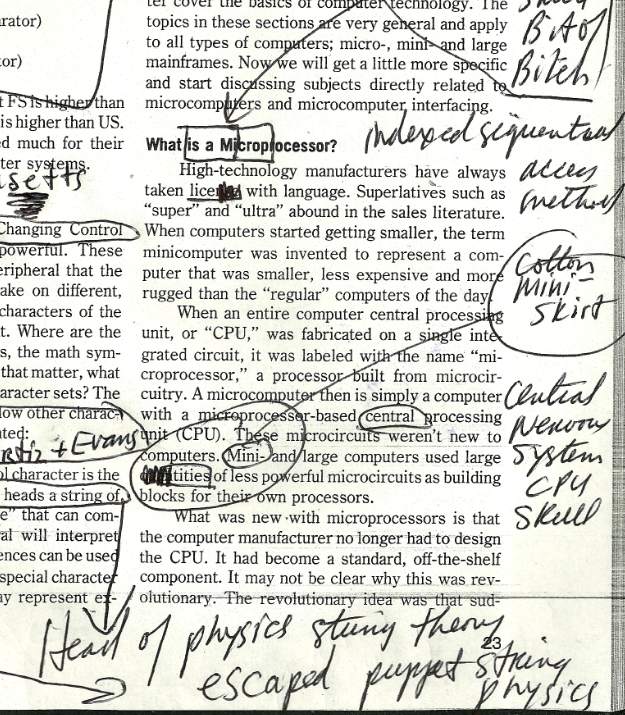 rator)
tor)
t FS is higher than
is higher than US.
ed much for their
ter systems.
setts
Changing Control
powerful. These
eripheral that the
ake on different,
characters of the
t. Where are the
s, the math sym-
that matter, what
aracter sets? The
low other charac-
ted:
+ Evans
ol character is the
heads a string of
e" that can com-
al will interpret
ences can be used
special character
ay represent ex-
ter cover the basics of computer technology. The
topics in these sections are very general and apply
to all types of computers; micro-, mini- and large
mainframes. Now we will get a little more specific
and start discussing subjects directly related to
microcomputers and microcomputer interfacing.
What is a Microprocessor?
High-technology manufacturers have always
taken with language. Superlatives such as
"super" and "ultra" abound in the sales literature.
When computers started getting smaller, the term
minicomputer was invented to represent a com-
puter that was smaller, less expensive and more
rugged than the "regular" computers of the day.
When an entire computer central processing
unit, or "CPU," was fabricated on a single inte-
grated circuit, it was labeled with the name "mi-
croprocessor," a processor built from microcir-
cuitry. A microcomputer then is simply a computer
with a microprocesser-based central processing
unit (CPU). These microcircuits weren't new to
computers. Mini- and large computers used large
tities of less powerful microcircuits as building
blocks for their own processors.
What was new with microprocessors is that
the computer manufacturer no longer had to design
the CPU. It had become a standard, off-the-shelf
component. It may not be clear why this was rev-
olutionary. The revolutionary idea was that sud-
Bit of
Bitch
indexed sequential
access
method
Cotton
Mini-
Skirt
Central
Nervous
System
CPU
Skull
23
Head of physics string theory
escaped puppet string
physics